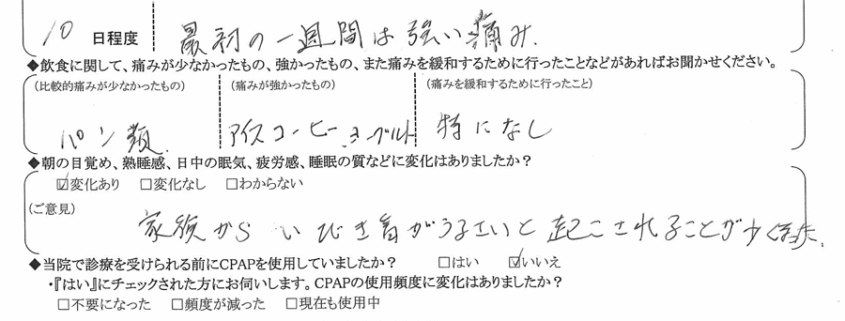 10 日程度 最初の一週間は強い痛み.
◆飲食に関して、痛みが少なかったもの、強かったもの、また痛みを緩和するために行ったことなどがあればお聞かせください。
(比較的痛みが少なかったもの) (痛みが強かったもの) (痛みを緩和するために行ったこと)
パン類. アイスコーヒー ヨーグルト 特になし
◆朝の目覚め、熟睡感、日中の眠気、疲労感、睡眠の質などに変化はありましたか？
☑変化あり □変化なし □わからない
(ご意見)
家族から いびき音がうるさいと 起こされることが少くなった.
◆当院で診療を受けられる前にCPAPを使用していましたか？ □はい ☑いいえ
・『はい』にチェックされた方にお伺いします。CPAPの使用頻度に変化はありましたか？
□不要になった □頻度が減った □現在も使用中